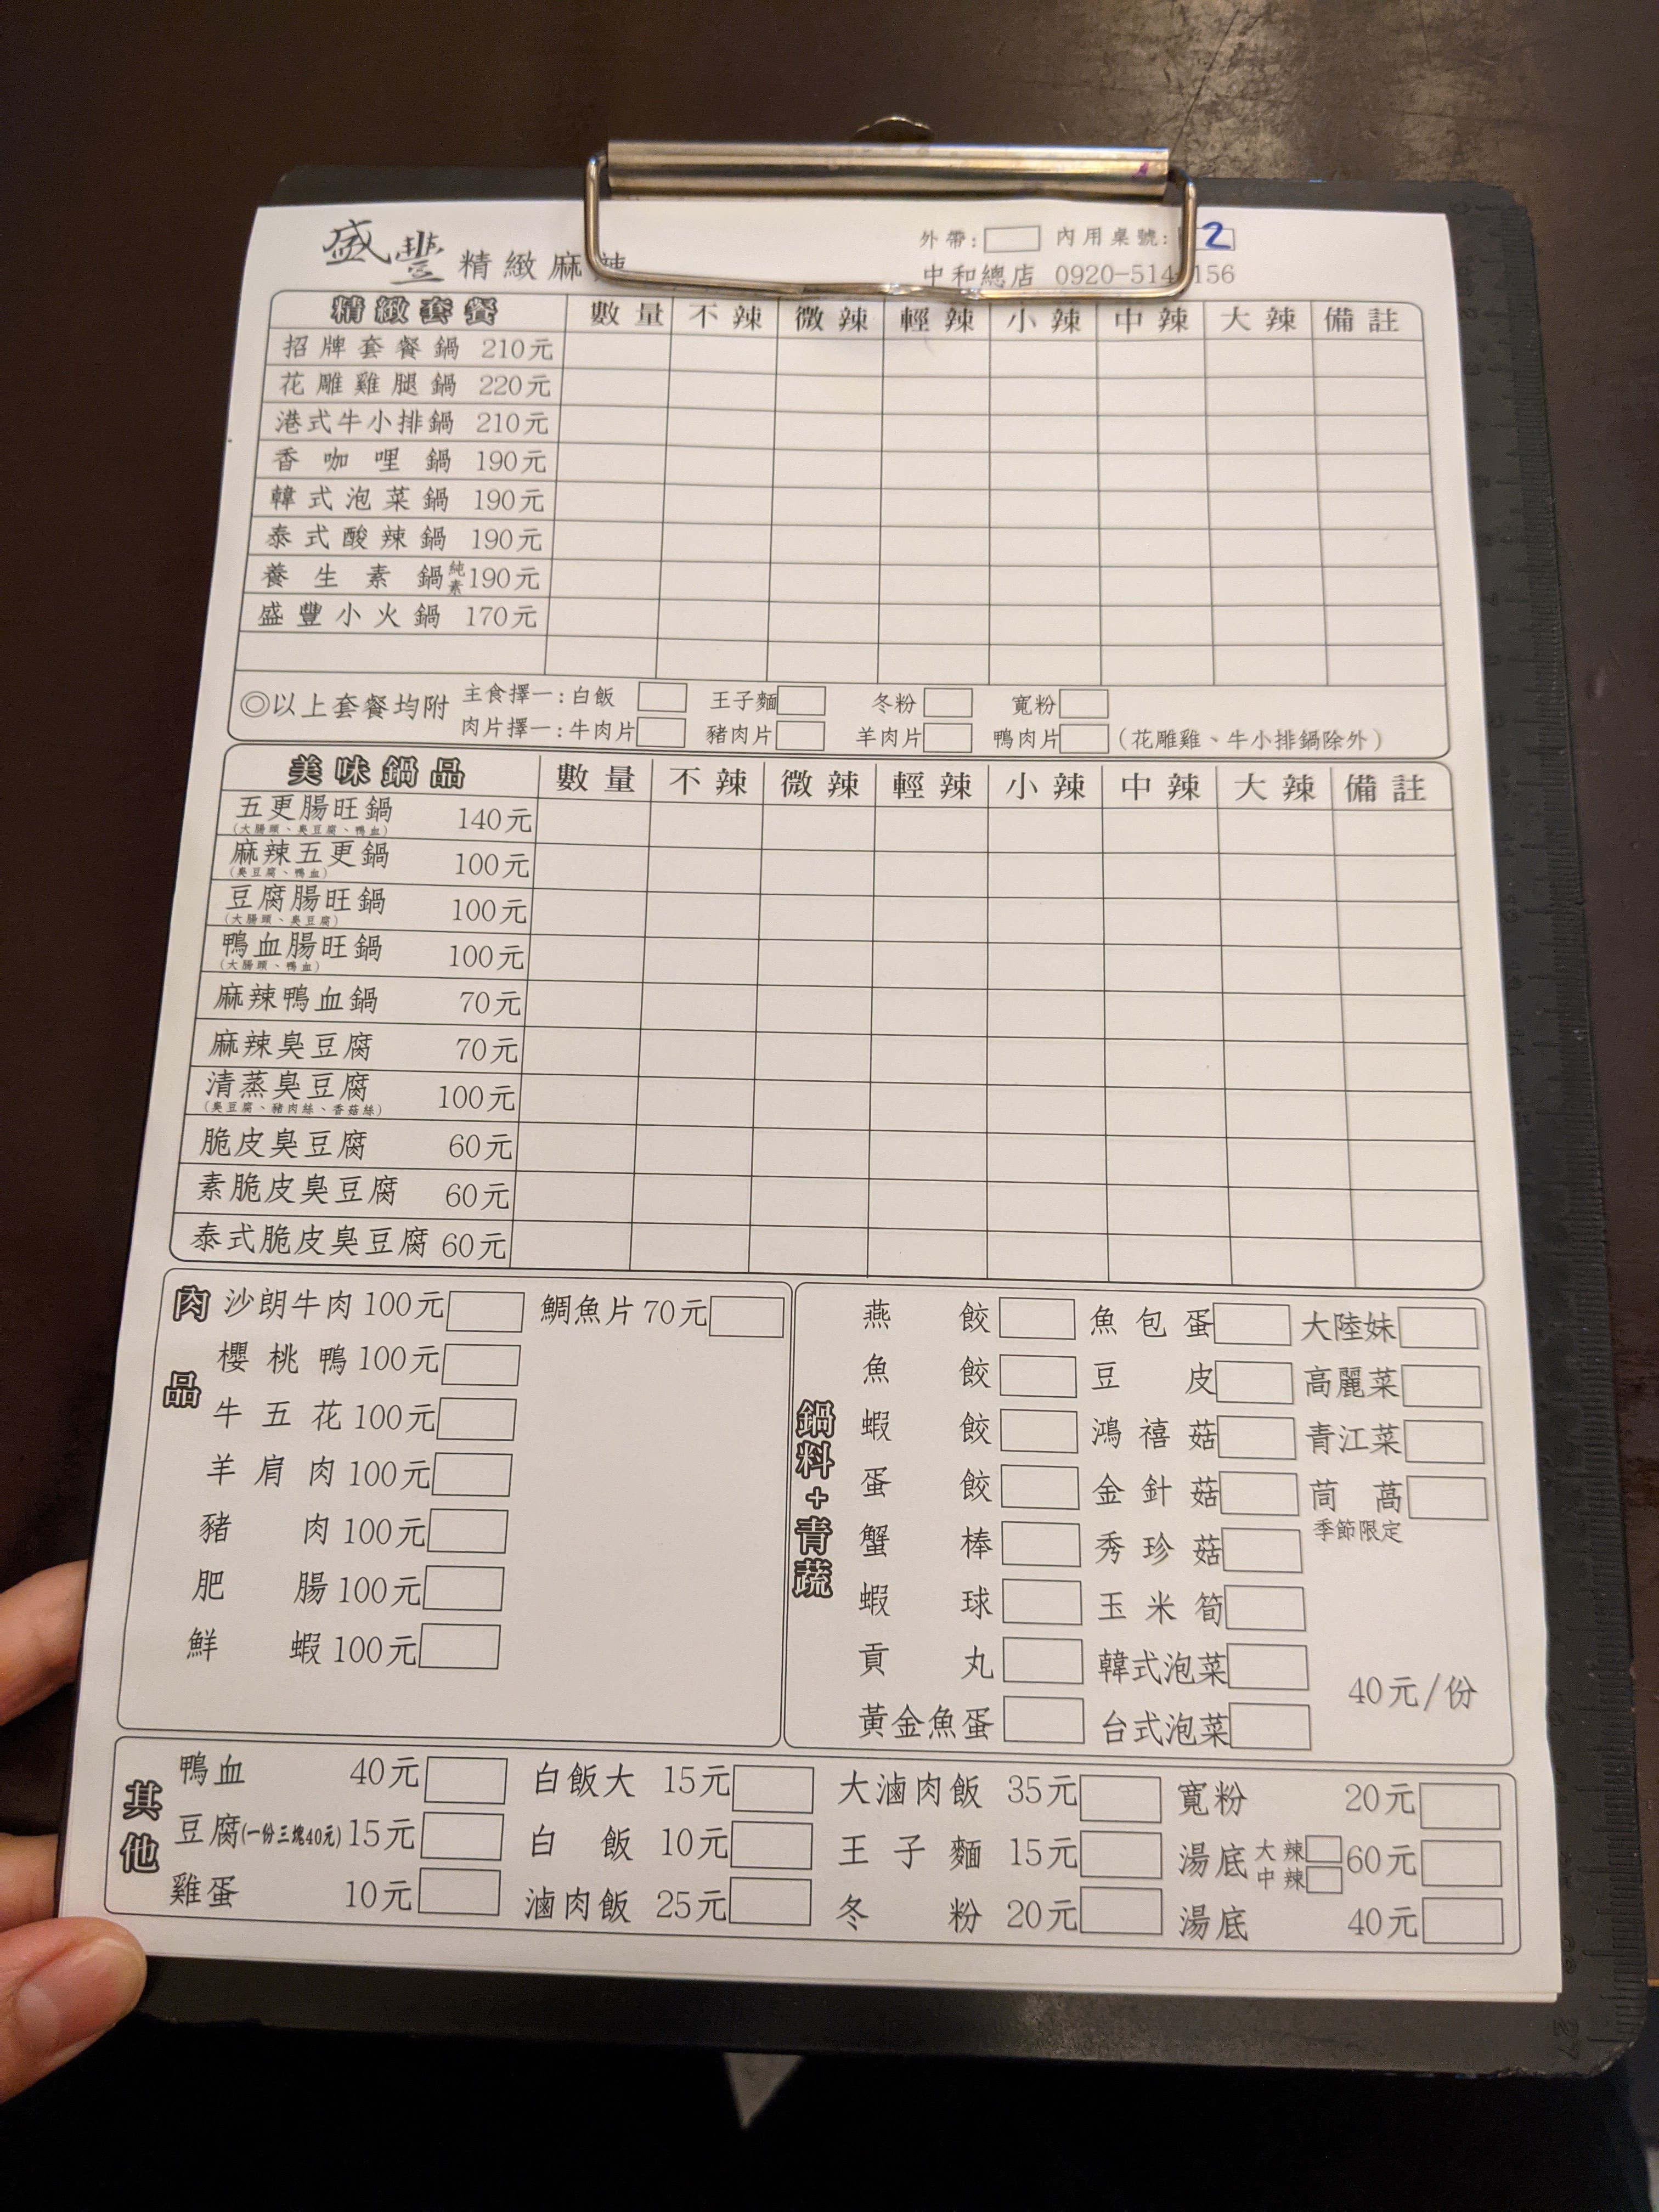 盛豐 精緻麻辣
外帶: 內用桌號: 2
中和總店 0920-514 156
精緻套餐 數量 不辣 微辣 輕辣 小辣 中辣 大辣 備註
招牌套餐鍋 210元
花雕雞腿鍋 220元
港式牛小排鍋 210元
香咖哩鍋 190元
韓式泡菜鍋 190元
泰式酸辣鍋 190元
養生素鍋 純素 190元
盛豐小火鍋 170元
◎以上套餐均附 主食擇一:白飯 王子麵 冬粉 寬粉
肉片擇一:牛肉片 豬肉片 羊肉片 鴨肉片 (花雕雞、牛小排鍋除外)
美味鍋品 數量 不辣 微辣 輕辣 小辣 中辣 大辣 備註
五更腸旺鍋 140元
(大腸頭、臭豆腐、鴨血)
麻辣五更鍋 100元
(臭豆腐、鴨血)
豆腐腸旺鍋 100元
(大腸頭、臭豆腐)
鴨血腸旺鍋 100元
(大腸頭、鴨血)
麻辣鴨血鍋 70元
麻辣臭豆腐 70元
清蒸臭豆腐 100元
(臭豆腐、豬肉絲、香菇絲)
脆皮臭豆腐 60元
素脆皮臭豆腐 60元
泰式脆皮臭豆腐 60元
肉品
沙朗牛肉 100元 鯛魚片 70元
櫻桃鴨 100元
牛五花 100元
羊肩肉 100元
豬肉 100元
肥腸 100元
鮮蝦 100元
鍋料+青蔬
燕餃 魚包蛋 大陸妹
魚餃 豆皮 高麗菜
蝦餃 鴻禧菇 青江菜
蛋餃 金針菇 茼萵
季節限定
蟹棒 秀珍菇
蝦球 玉米筍
貢丸 韓式泡菜
40元/份
黃金魚蛋 台式泡菜
其他
鴨血 40元 白飯大 15元 大滷肉飯 35元 寬粉 20元
豆腐(一份三塊40元) 15元 白飯 10元 王子麵 15元 湯底 大辣 中辣 60元
雞蛋 10元 滷肉飯 25元 冬粉 20元 湯底 40元